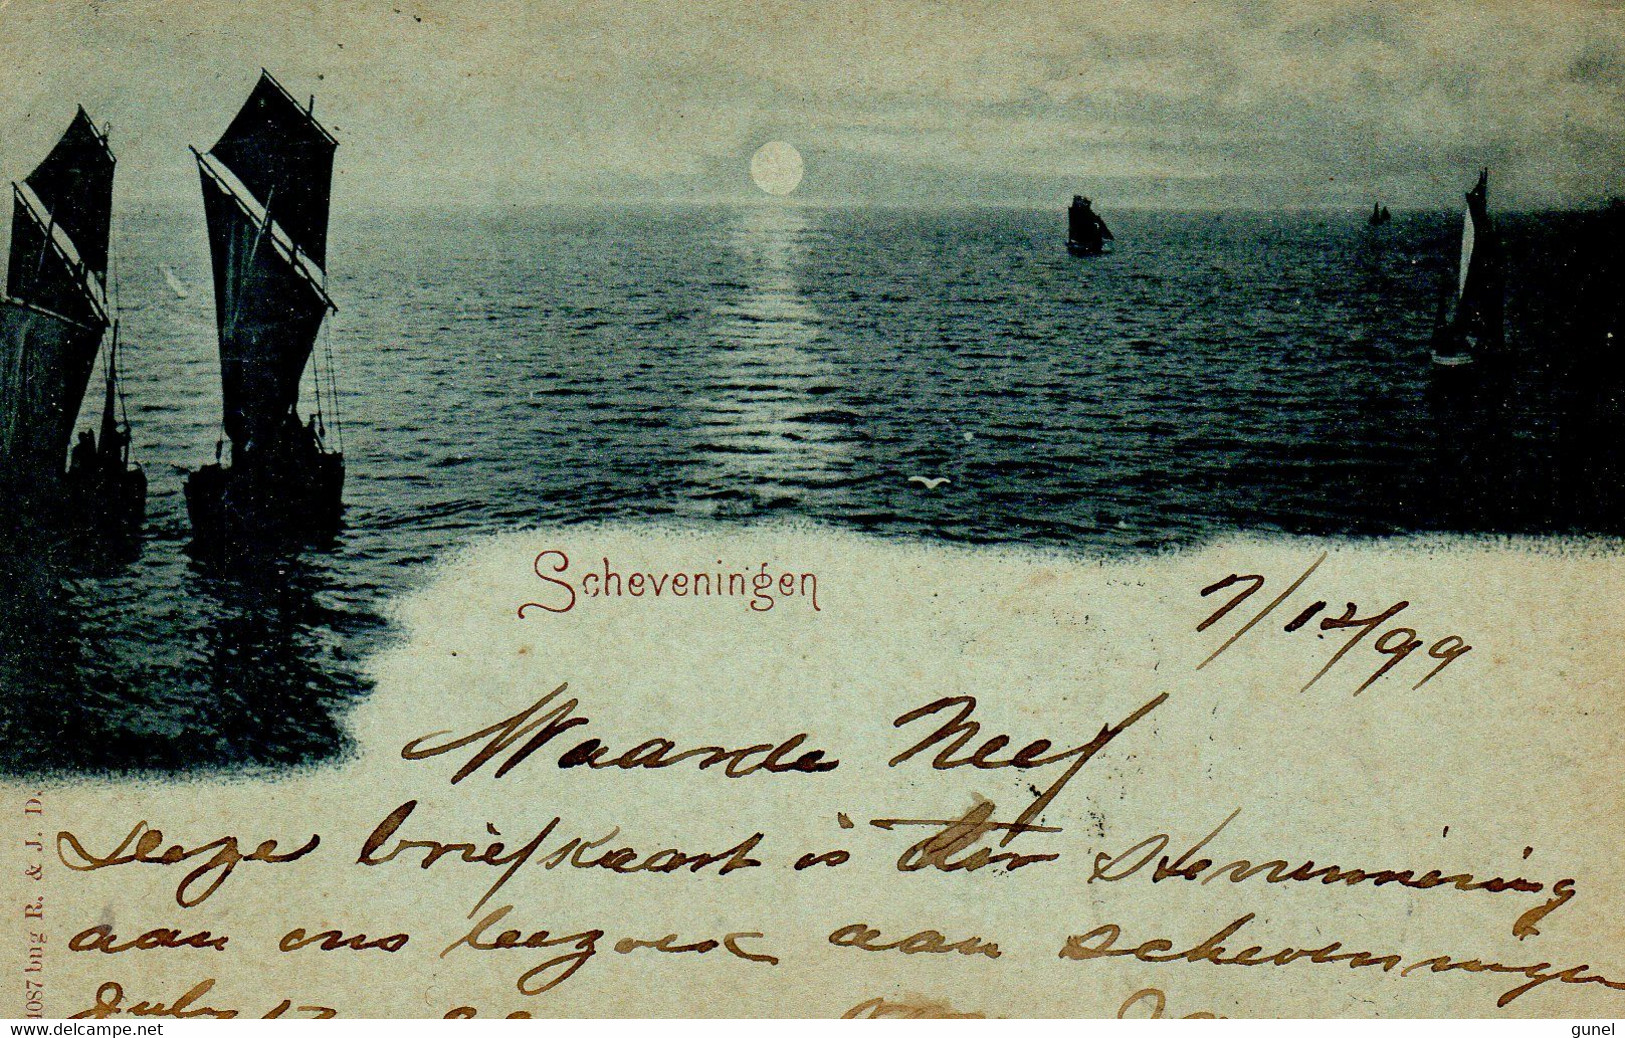 Scheveningen
7/12/99
Waarde Neef
Deeze briefkaart is ter
aan ons beezoek aan scheveningen
July
1087 bng R. & J. D.
www.delcampe.net
gunel